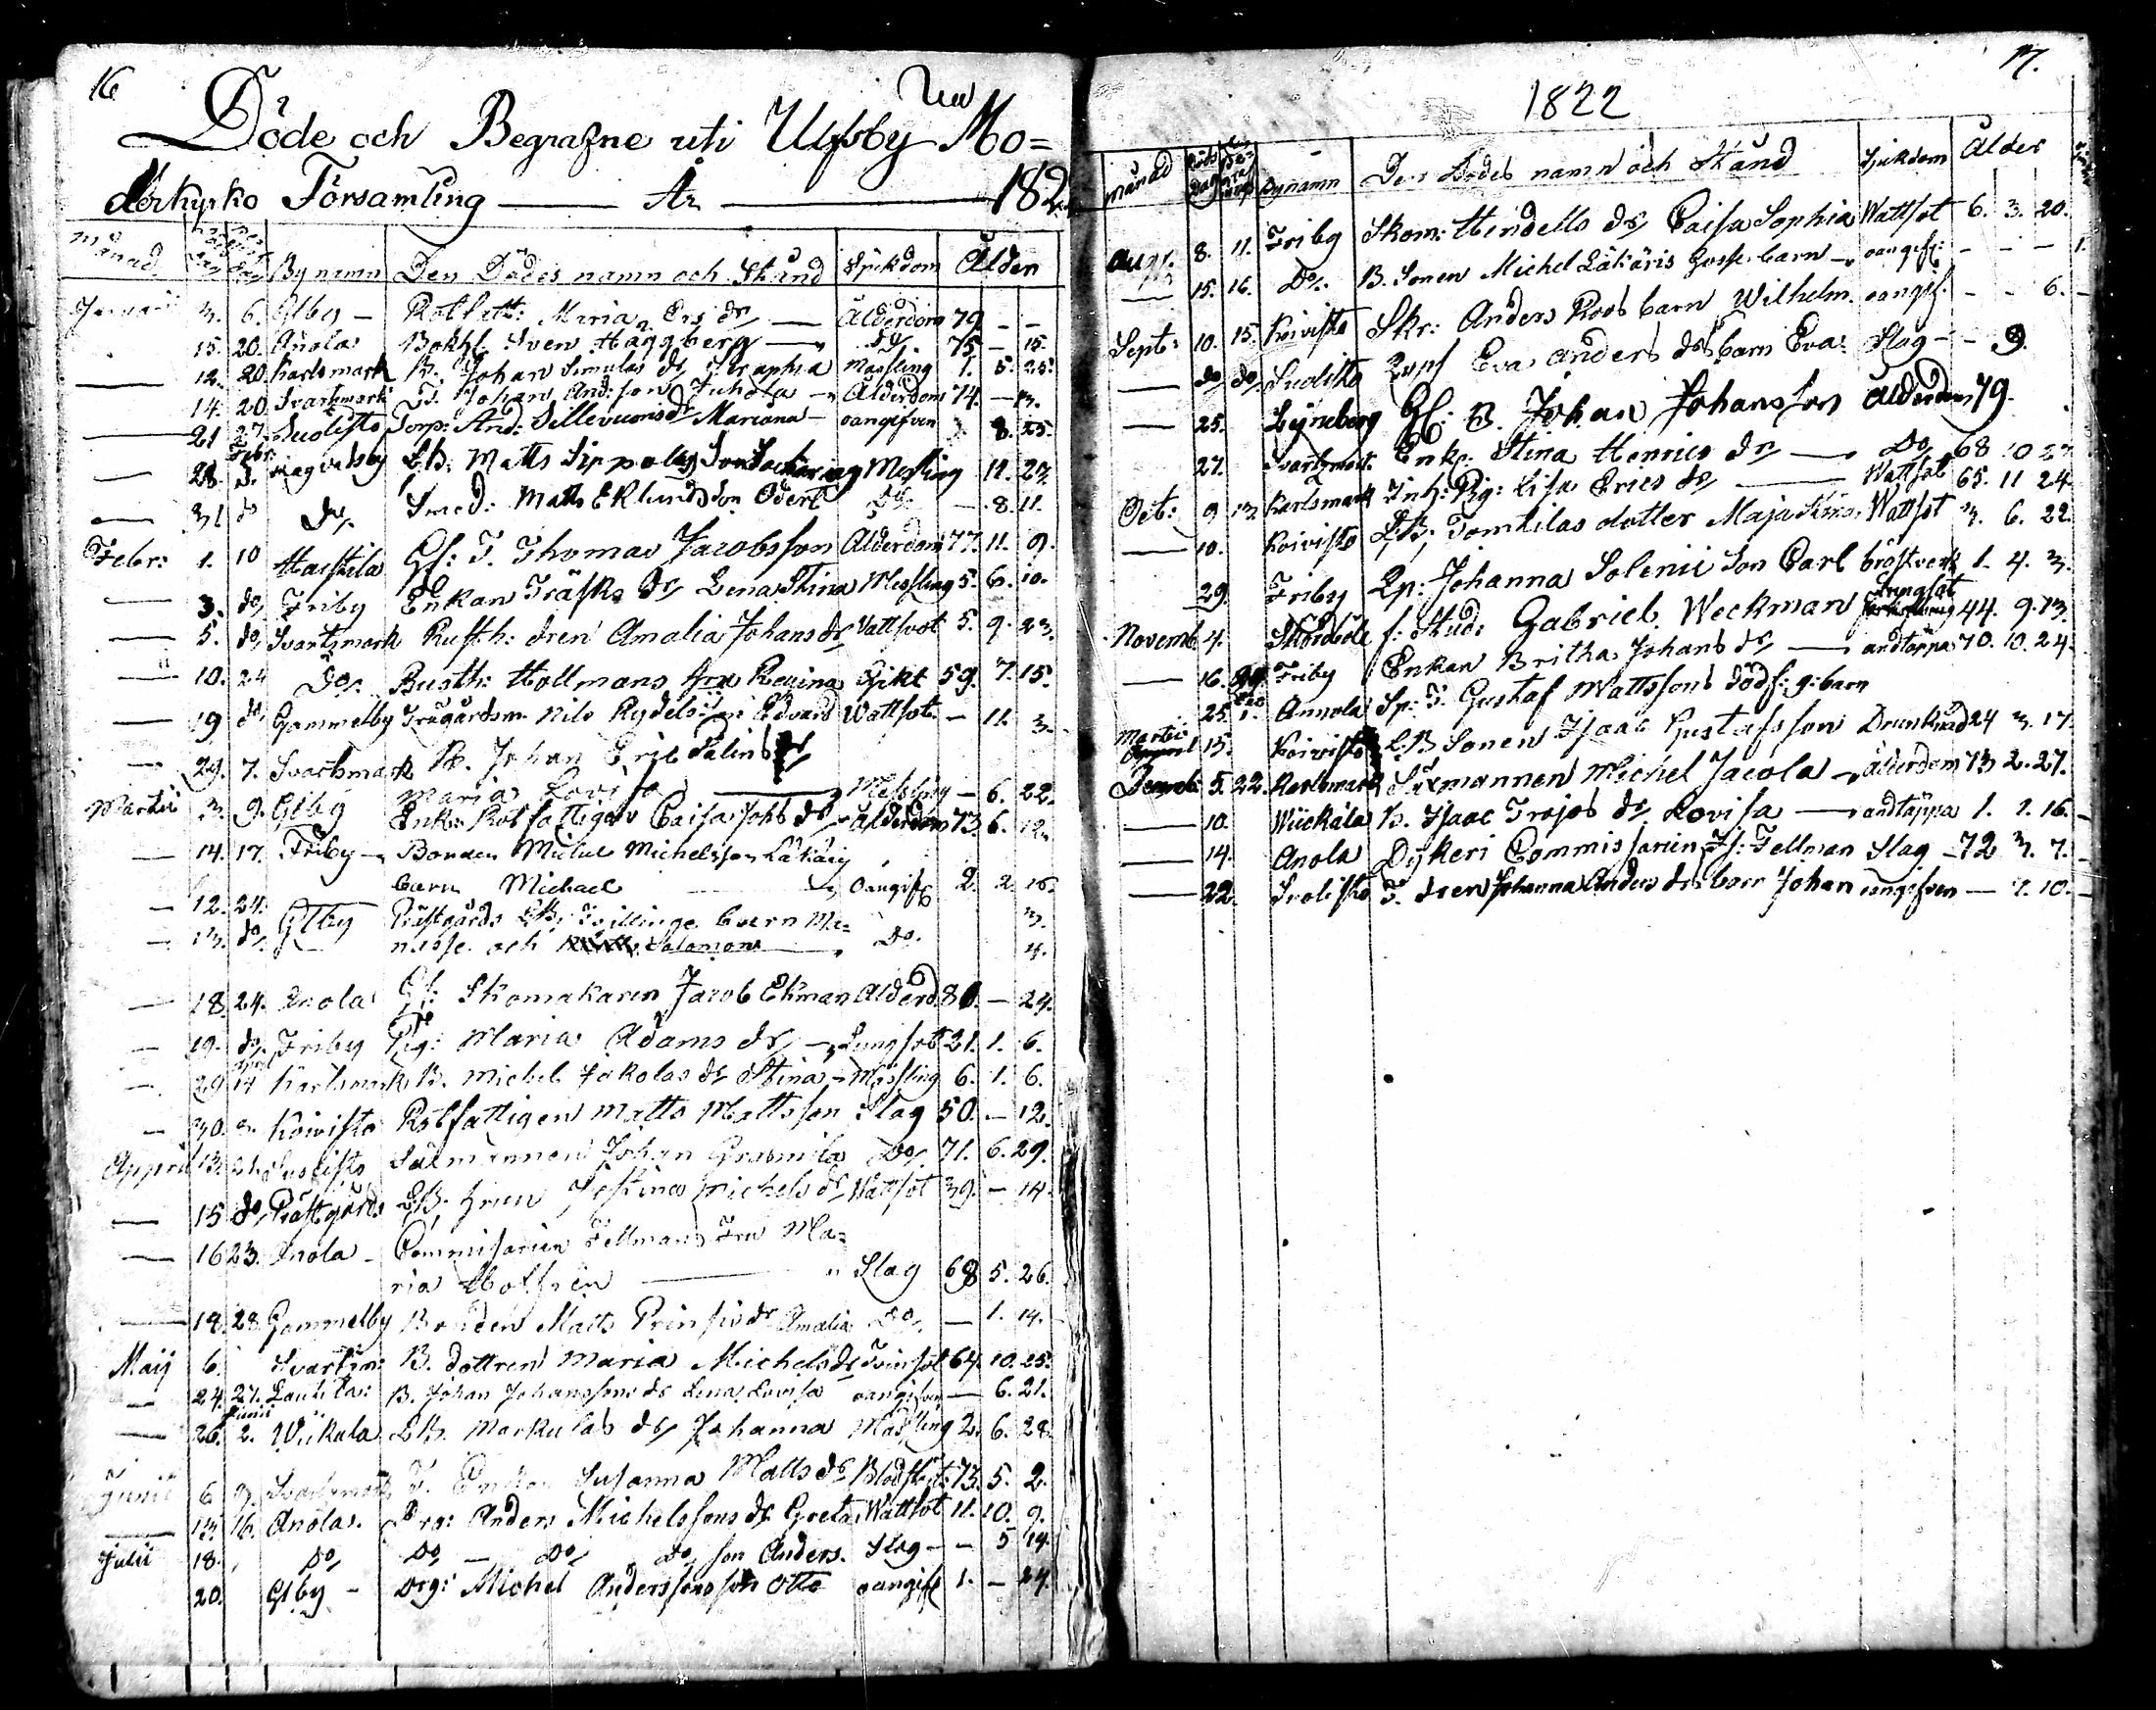 16
Döde och Begrafne uti Ulfsby Mo=
derkyrko Församling — År — 182
Månad By namn Den Dödes namn och Stånd Sjukdom Ålder
Januari 3. 6. Glby — Maria Ers dr — Ålderdom 79 — —
15. 20. Anola Bokh. Sven Häggberg — Do. 75 — 15.
— 12. 20. Karlsmark B. Johan Simulas dr Seraphia Massling 1. 5. 25.
14. 20. Svartsmark T. Johan And:son Juhola — Ålderdom 74. — 13.
— 21 27. Suolisto Torp: And: dr Mariana — oangifven 8. 25.
— 28. Febr. 3. Ragvalsby LB. Matts Sippolas Son Messling 11. 27.
— 31 do Do. Smed: Matts Eklunds Son Edert Do. — 8. 11.
Febr: 1. 10 Haistila Gl: T. Thomas Jacobsson Ålderdom 77. 11. 9.
— 3. do Friby Enkan Träsks dr Lena Stina Messling 5. 6. 10.
— 5. do Svartsmark Rusth: dren Amalia Johans dr Vattsot 5. 9. 23.
— 10. 24 Do. Rusth: Hollmans Regina 59. 7. 15.
— 19 do Gammelby Trägårdsm. Nils Rydels Son Edvard Wattsot. — 11. 3.
— 29. 7. Svartsmark B. Johan Eric Salins dr
Maria Lovisa — Messling — 6. 22.
Martii 3. 9. Glby Enk: Rotfattigas Caisa Johs dr Ålderdom 73. 6. 12.
— 14. 17. Friby — Bonden Michel Michelsson Läkäris
barn Michael — Oangif 2. 2. 16.
— 12. 24. Glby Prästgårds LB. Tvillinge barn Ma= 3.
— 13. do nasse och Salamon — Do. 4.
— 18. 24. Anola Gl: Skomakaren Jacob Ekman Ålderd — 24.
— 19. do Friby Pig: Maria Adams dr — Lungsot 21. 1. 6.
— 29 April 14 Karlsmark B. Michel Jakolas dr Stina — Mässling 6. 1. 6.
— 30. Koivisto Rotfattigen Matts Mattsson Slag 50. — 12.
April 13. 21. Suolisto Säxmannen Johan Do. 71. 6. 29.
— 15 do Prästgårds LB. Hrun Justina Michels dr Wattsot 39. — 14.
— 16 23. Anola — Commisarien Fellmans Fru Ma=
ria — Slag 68 5. 26.
— 18. 28. Gammelby Bonden Matts dr Amalia Do. — 1. 14.
Maij 6. Svartsm: B. dottren Maria Michels dr 64. 10. 25.
— 24. 27. Lautila: B. Johan Johanssons dr Lena Lovisa oangifven — 6. 21.
— 26. Junii 2. Wiikala LB. Markulas dr Johanna Mässling 2. 6. 28.
Junii 6 9. Svartsmark T. Enkan Susanna Matts dr 73. 5. 2.
— 13. 16. Anola. Drg: Anders Michelssons dr Greta Wattsot 11. 10. 9.
Julii 18. Do Do — Do Do son Anders. Slag — — 5 14.
20. Glby — Drg: Michel Anderssons son Otto oangif 1. — 24.
1822
17.
Månad Bynamn Den Dödes namn och Stånd Sjukdom Ålder
Augt. 8. 11. Friby Skom: Hindells dr Caisa Sophia Wattsot 6. 3. 20.
— 15. 16. Do. B. Sonen Michel Läkäris Gosse barn — oangif: — — — 1.
Sept: 10. 15. Koivisto Skr: Anders Roos barn Wilhelm. oangif. — — 6. —
— do do Suolisto Eva Anders drs barn Eva. Slag — — 9.
— 25. Lyneberg Gl: B. Johan Johansson Ålderdom 79.
27. Svartsmark Enk: Stina Henrics dr — Do 68 10 27
Oct: 9 13. Karlsmark Inh: Pig: Lisa Erics dr — Wattsot 65. 11 24.
— 10. Koivisto LB: Tomtilas dotter Maja Stina Wattsot 3. 6. 22.
29. Friby Johanna Solenii Son Carl bröstverk 1. 4. 3.
Novemb. 4. f: Stud: Gabriel Weckman Lungsot 44. 9. 13.
— 16. Friby Enkan Britha Johans dr — andtäppa 70. 10. 24.
25. 1. Annola Sp: T. Gustaf Mattssons dödf: g: barn
Martii 15. Koivisto LB Sonen Isaac Gustafsson Drunknad 24 3. 17.
Decemb. 5. 22. Karlsmark Säxmannen Michel Jacola — ålderdom 73 2. 27.
— 10. Wiickala B. Isaac Trojos dr Lovisa — andtäppa 1. 1. 16. —
— 14. Anola Dykeri Commissarien Fellman Slag — 72 3. 7. —
— 22. Suolisto T. dren Johanna Anders drs barn Johan oangifven — 1. 10. —